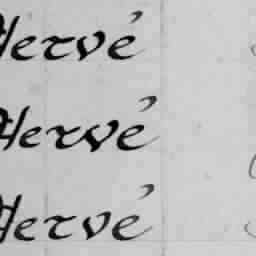 Hervé
Hervé
Hervé